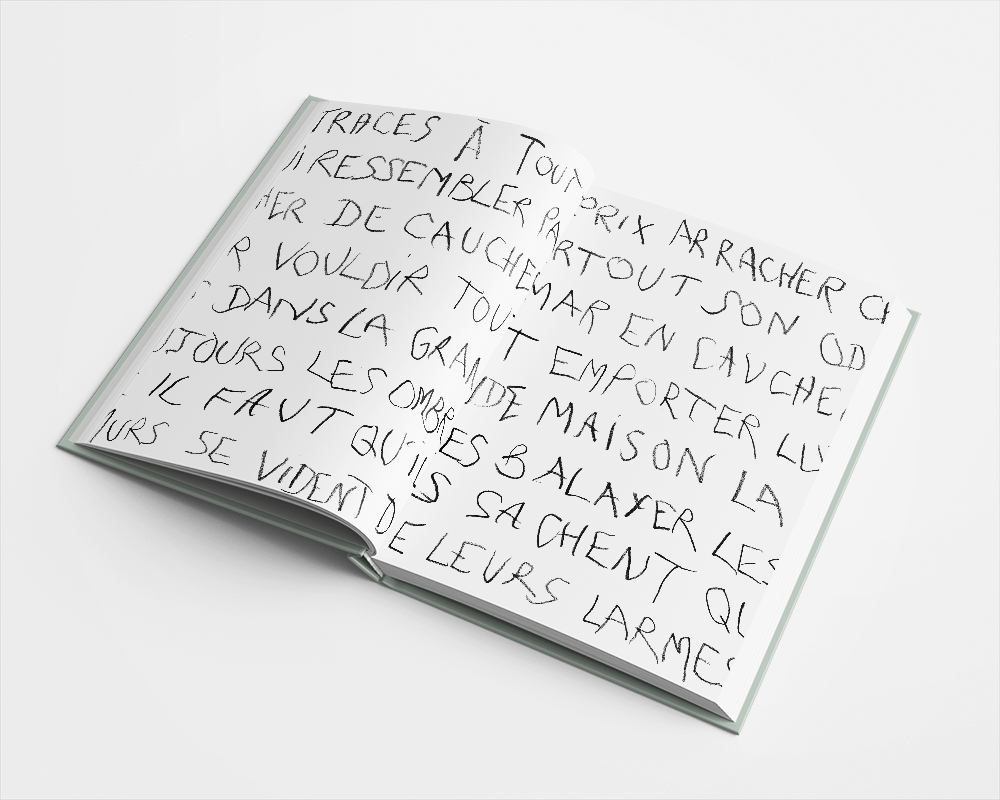 TRACES À TOUT PRIX ARRACHER
RESSEMBLER PARTOUT SON OD
HER DE CAUCHEMAR EN CAUCHE
R VOULOIR TOUT EMPORTER
DANS LA GRANDE MAISON LA
JOURS LES OMBRES BALAYER LES
IL FAUT QU'ILS SACHENT QU
URS SE VIDENT DE LEURS LARMES